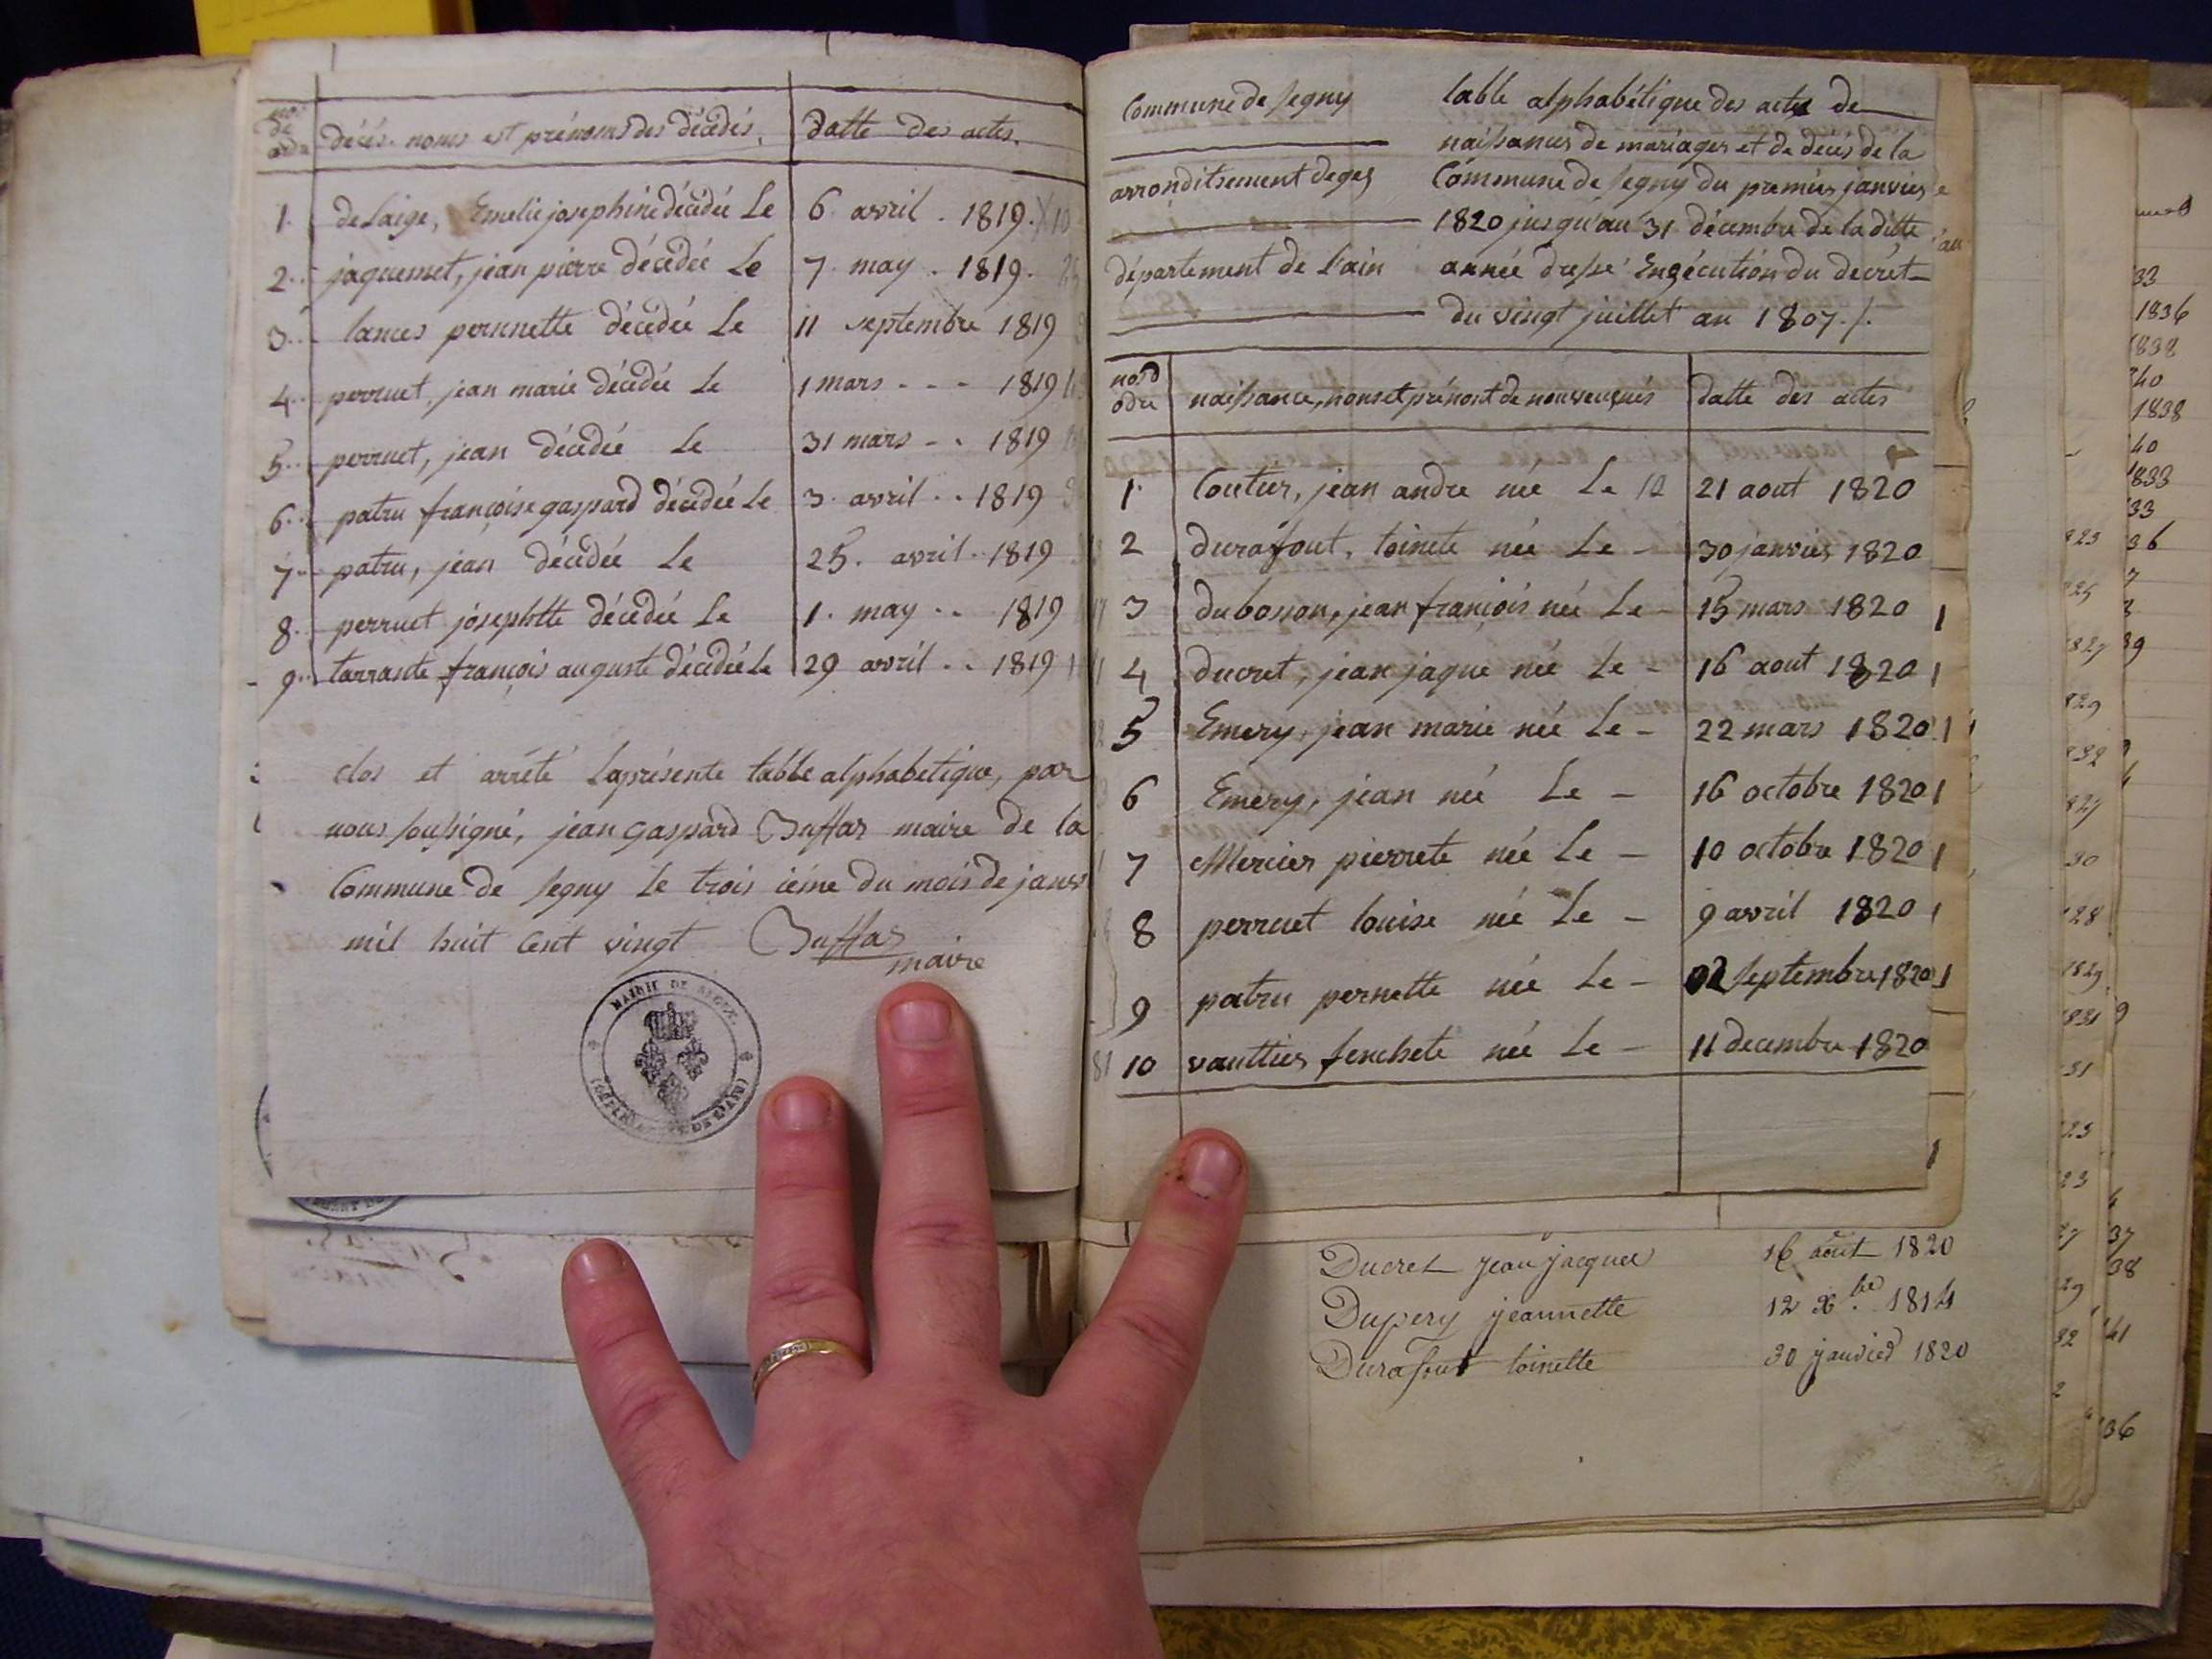 nos de ordre
décés. noms est prénoms des décédés.
datte des actes.
1. delaige, Emelie josephine décédée Le 6 avril . 1819.
2. jaquemet, jean pierre décédée Le 7 may . 1819.
3. lances pernnette décédée Le 11 septembre 1819
4. perruet, jean marie décédée Le 1 mars - - - 1819
5. perruet, jean décédée Le 31 mars - . 1819
6. patru françoise gaspard décédée Le 3 avril . . 1819
7. patru, jean décédée Le 25. avril . 1819
8. perruet josephtte décédée Le 1. may . . 1819
9. tarrante françois auguste décédée Le 29 avril . . 1819
clos et arrêté Laprésente table alphabetique, par
nous soussigné, jean gaspard Buffaz maire de la
Commune de Segny Le trois ième du mois de janv
mil huit Cent vingt Buffaz
maire
MAIRIE DE
Commune de Segny
arronditsement de gex
département de L'ain
table alphabétique des actes de
naissances de mariages et de décés de la
Commune de Segny du premier janvier
1820 jusqu'au 31 décembre de la ditte
année dressé Enexécution du decret
du vingt juillet an 1807 ./.
no d odre
naissance, nons et prénons de nouveuxnés
datte des actes
1. Coutier, jean andre née Le 21 aout 1820
2 durafout, toinete née Le - 30 janvier 1820
3 dubosson, jean françois née Le - 15 mars 1820
4 ducret, jean jaque née Le - 16 aout 1820
5 Emery, jean marie née Le - 22 mars 1820
6 Emery, jean née Le - 16 octobre 1820
7 Mercier pierrete née Le - 10 octobre 1820
8 perruet louise née Le - 9 avril 1820
9 patru pernette née Le - 02 Septembre 1820
10 vauttier fenchete née Le - 11 decembre 1820
Ducret jean jacques 16 août 1820
Dupery jeannette 12 Xbre 1814
Durafout toinette 30 janvier 1820